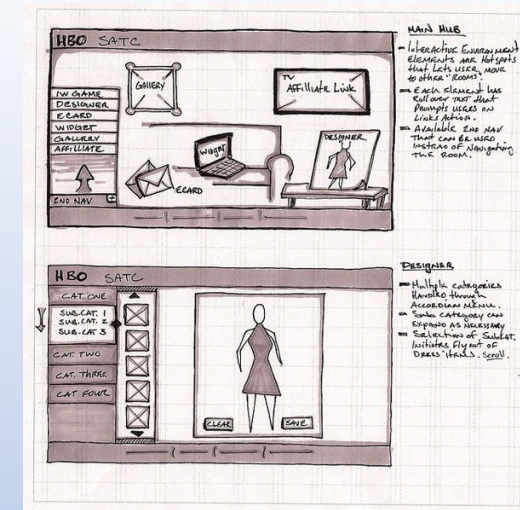 HBO SATC
GALLERY
TV
AFFILLIATE LINK
I/W GAME
DESIGNER
ECARD
WIDGET
GALLERY
AFFILLIATE
2ND NAV
WIDGET
ECARD
DESIGNER
MAIN HUB
- INTERACTIVE ENVIRONMENT
ELEMENTS ARE HOTSPOTS
THAT LETS USER MOVE
TO OTHER "ROOMS".
- EACH ELEMENT HAS
ROLLOVER TEXT THAT
PROMPTS USERS ON
LINKS ACTION.
- AVAILABLE 2ND NAV
THAT CAN BE USED
INSTEAD OF NAVIGATING
THE ROOM.
HBO SATC
CAT. ONE
SUB.CAT. 1
SUB.CAT. 2
SUB.CAT 3
CAT. TWO
CAT. THREE
CAT FOUR
CLEAR
SAVE
DESIGNER
- MULTIPLE CATEGORIES
HANDLED THROUGH
ACCORDIAN MENU.
- SUB CATEGORY CAN
EXPAND AS NECESSARY
- SELECTION OF SUBCAT.
INITIATES FLYOUT OF
DRESS ITEMS. SCROLL.